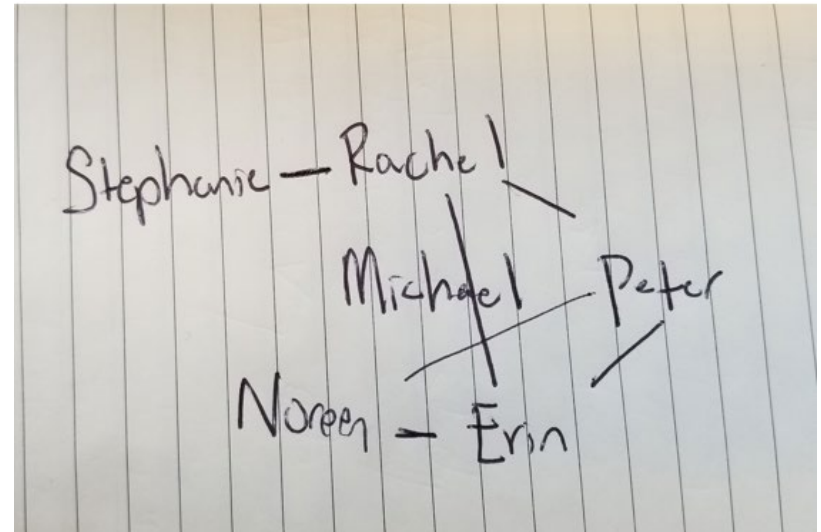 Stephanie – Rachel
Michael Peter
Noreen – Erin